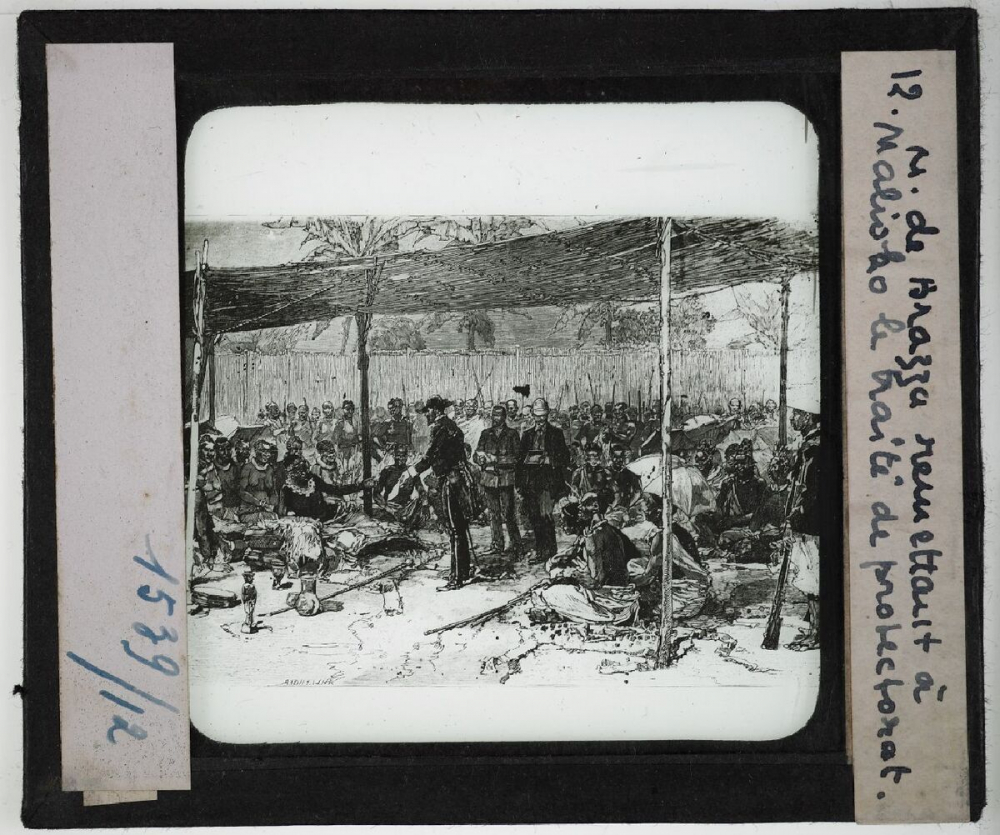 12. M. de Brazza remettant à
Malioko le traité de protectorat.
1539/12